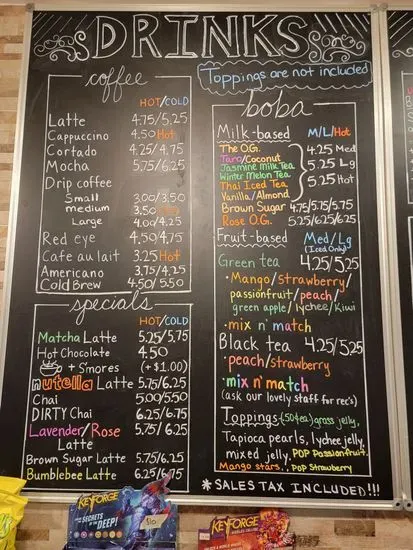 DRINKS
Toppings are not included
coffee
HOT/COLD
Latte 4.75/5.25
Cappuccino 4.50 Hot
Cortado 4.25/4.75
Mocha 5.75/6.25
Drip coffee
Small 3.00/3.50
medium 3.50
Large 4.00/4.25
Red eye 4.50/4.75
Cafe au lait 3.25 Hot
Americano 3.75/4.25
Cold Brew 4.50/5.50
specials
HOT/COLD
Matcha Latte 5.25/5.75
Hot Chocolate 4.50
+ Smores (+$1.00)
nutella Latte 5.75/6.25
Chai 5.00/5.50
DIRTY Chai 6.25/6.75
Lavender/Rose 5.75/6.25
Latte
Brown Sugar Latte 5.75/6.25
Bumblebee Latte 6.25/6.75
boba
Milk-based M/L/Hot
The O.G.
Taro/Coconut
Jasmine Milk Tea
Winter Melon Tea
Thai Iced Tea
Vanilla/Almond
4.25 Med
5.25 Lg
5.25 Hot
Brown Sugar 4.75/5.75/5.75
Rose O.G. 5.25/6.25/6.25
Fruit-based Med/Lg
(Iced Only)
Green tea 4.25/5.25
• Mango/strawberry/
passionfruit/peach/
green apple/lychee/Kiwi
• mix n' match
Black tea 4.25/5.25
• peach/strawberry
• mix n' match
(ask our lovely staff for rec's)
Toppings (50¢ea) grass jelly,
Tapioca pearls, lychee jelly,
mixed jelly, POP Passionfruit,
Mango stars, POP Strawberry
* SALES TAX INCLUDED!!!
KEYFORGE
SECRETS OF THE DEEP!
$10
KEYFORGE